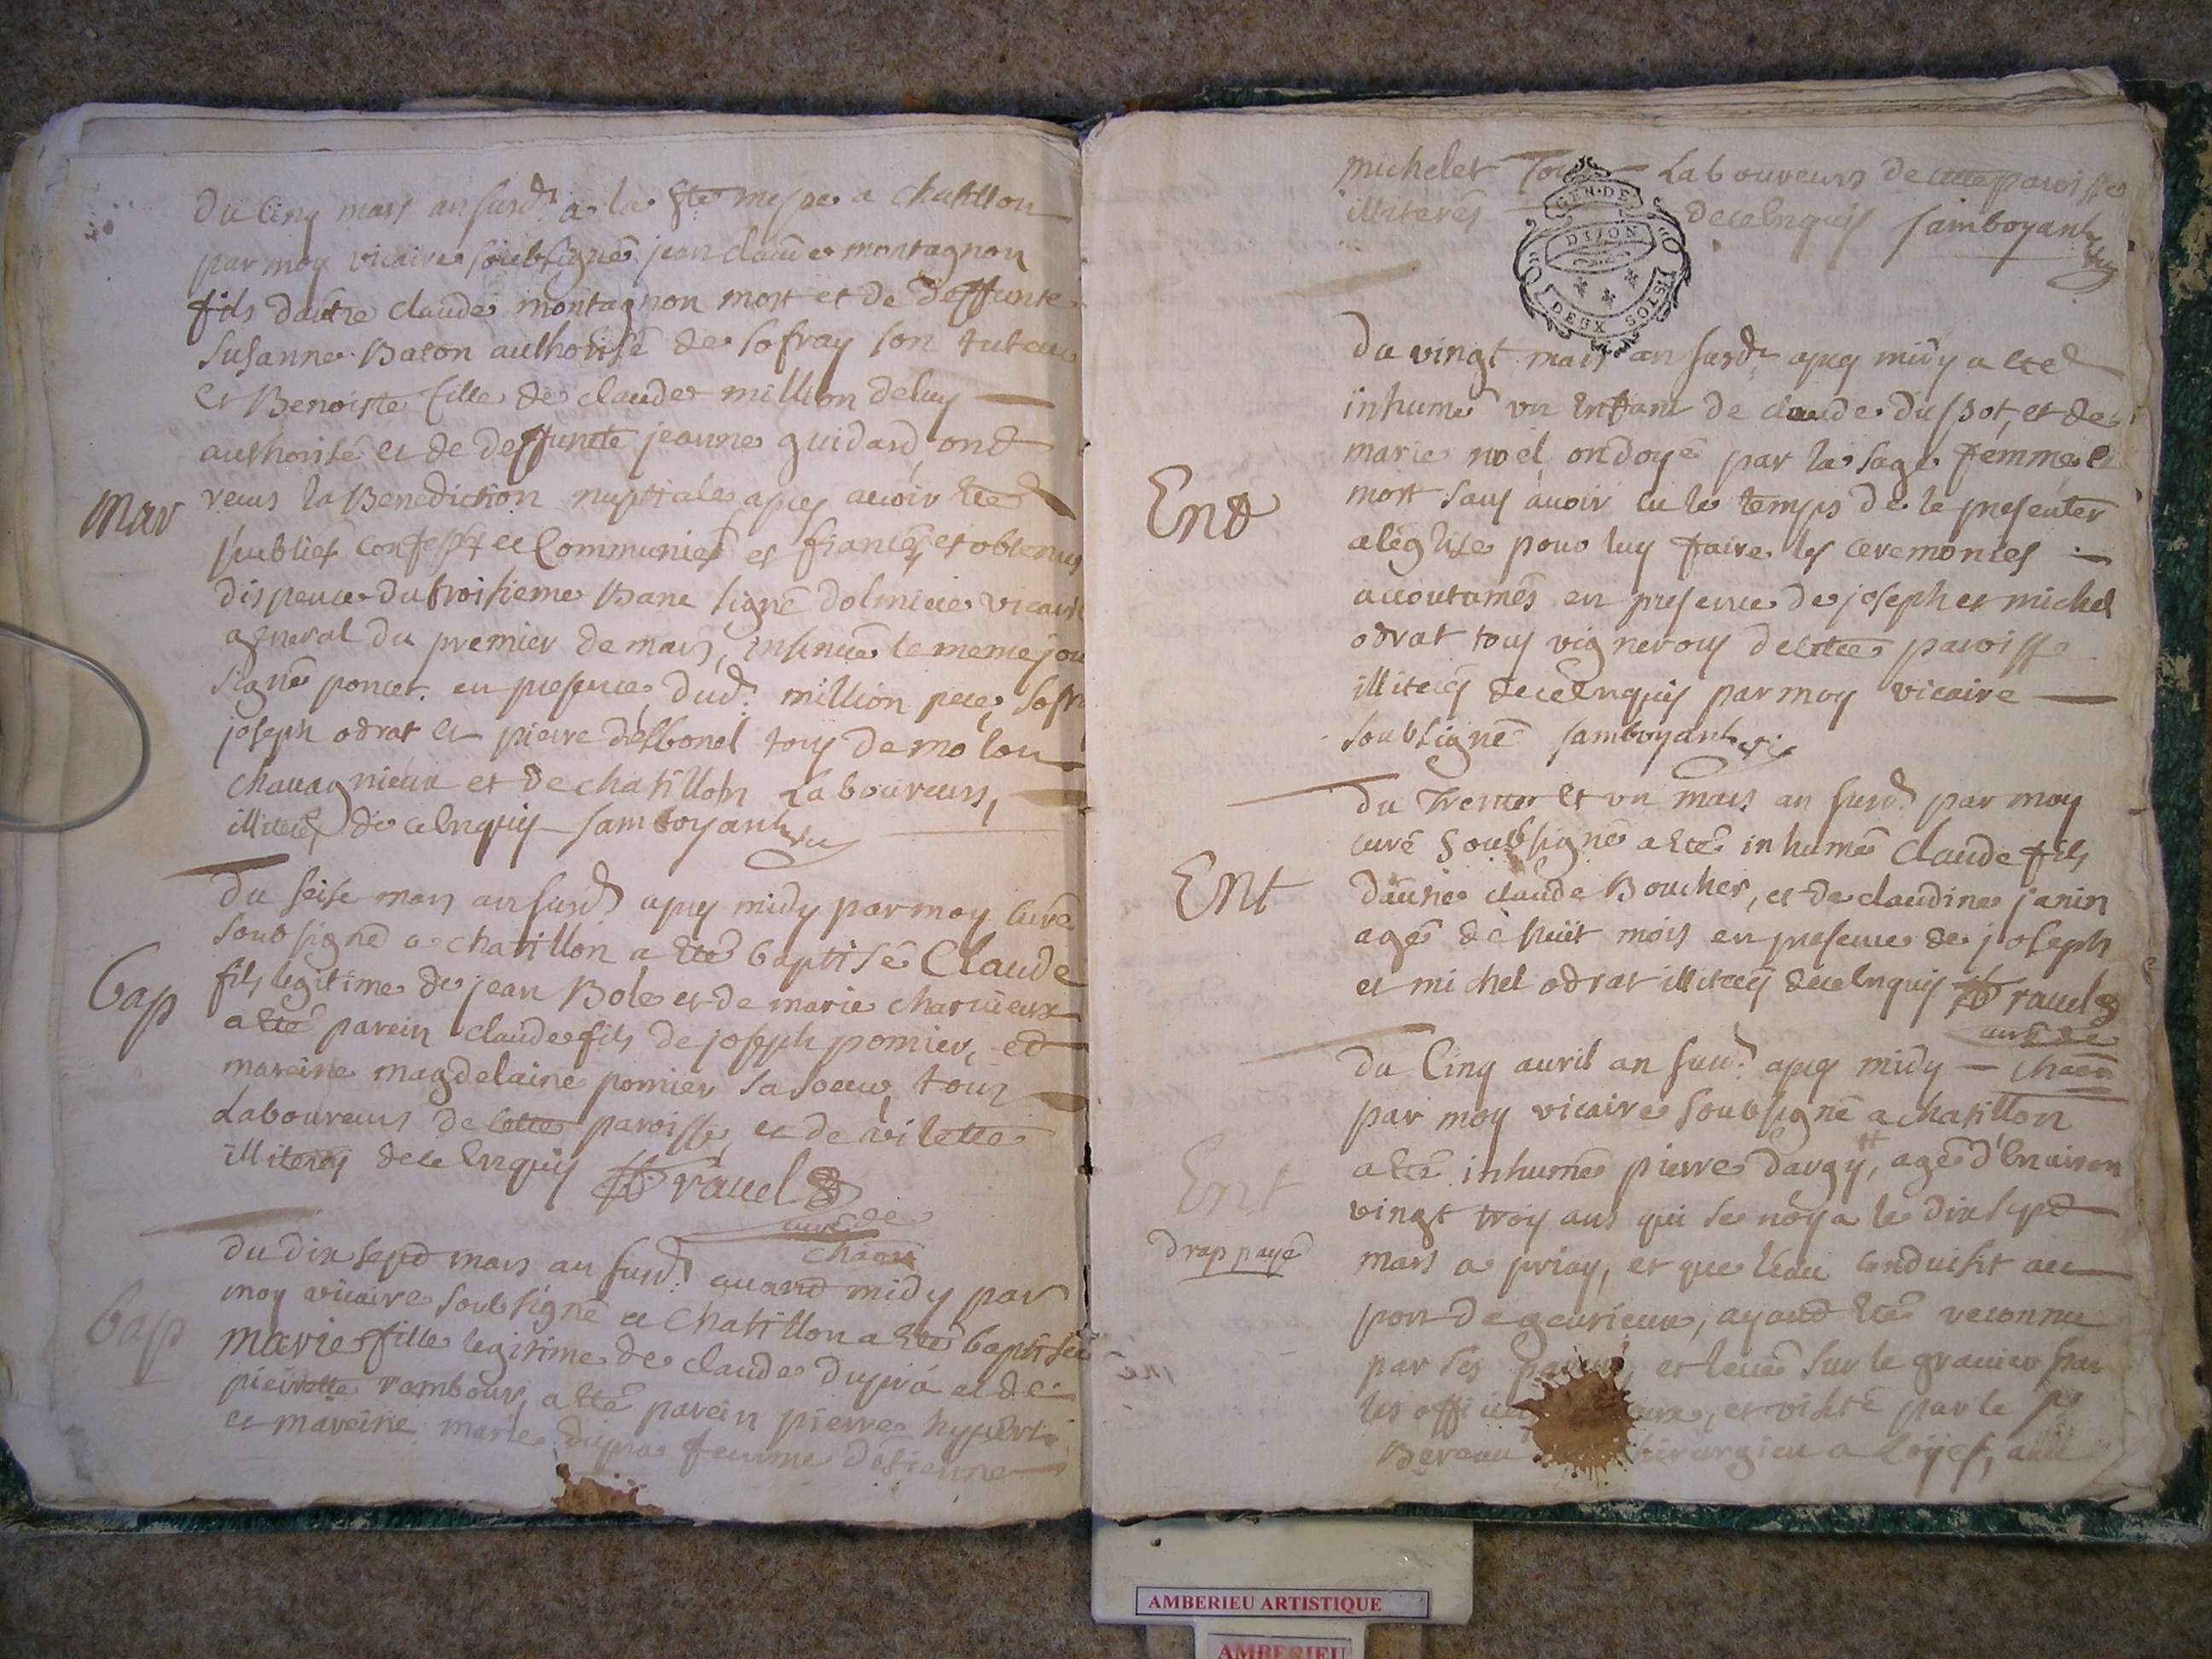 du cinq mars an susd.t a la Ste messe a chastillon
par moy vicaire soubsigné jean claude montagnon
fils dautre claude montagnon mort et de deffunte
susanne Baton authorisé de sofray son tuteur
et Benoiste fille de claude million deluy
authorisé et de deffuncte jeanne guidard, ont
Mar
receus la Benediction nuptiale apres avoir été
publies confesses et Communies et fiancés, et obtenus
dispence du troisieme Banc signé dolmiere vicaire
general du premier de mars, insinuée le meme jou
signé poncet. en presence dud.t million pere, sofr
joseph odrat et pierre desbonel tous de molon
chavagnieux et de chatillon Laboureurs,
illiterés de ce Enquis samboyant vic
du seise mars an susd.t apres midy par moy curé
soubsigné a chatillon a eté baptisé Claude
Bap
fils legitime de jean Bole et de marie charvieux
a eté parein claude fils de joseph pomier, et
mareine magdelaine pomier sa soeur, tous
Laboureurs de cette paroisse, et de vilette
illiterés de ce Enquis ravel
curé de
chaon
du dix sept mars an susd.t avant midy par
moy vicaire soubsigné a chatillon a eté baptisée
Bap
marie fille legitime de claude dupra et de
pierrette rambour, a eté parein pierre hypert
et mareine marie dupra femme destienne
michelet Laboureurs de cette paroisse
illiterés de ce Enquis samboyant vic
GEN. DE
DIJON
DEUX SOLS
du vingt mars an susd.t apres midy a eté
inhumé un Enfant de claude dussot, et de
marie noel ondoyé par la sage femme et
Ent
mort sans avoir eu le temps de le presenter
a léglise pour luy faire les ceremonies
accoutumés en presence de joseph et michel
odrat tous vignerons de cette paroisse
illiterés de ce Enquis par moy vicaire
soubsigné samboyant vic
du trente et un mars an susd.t par moy
curé soubsigné a eté inhumé claude fils
Ent
dautre claude Boucher, et de claudine janin
agé de huit mois en presence de joseph
et michel odrat illiterés de ce Enquis ravel
curé de
du cinq avril an susd.t apres midy — chaon
par moy vicaire soubsigné a chatillon
Ent
a eté inhumé pierre davgy, agé d'Environ
vingt troys ans qui se noya le dix sept
drap payé
mars a priay, et que l'eau conduisit au
port de gevrieux, ayant eté reconnu
par ses parens, et levé sur le gravier par
les officiers et visité par le sr
Bereau chirurgien a loyes, avec
AMBERIEU ARTISTIQUE
AMBERIEU